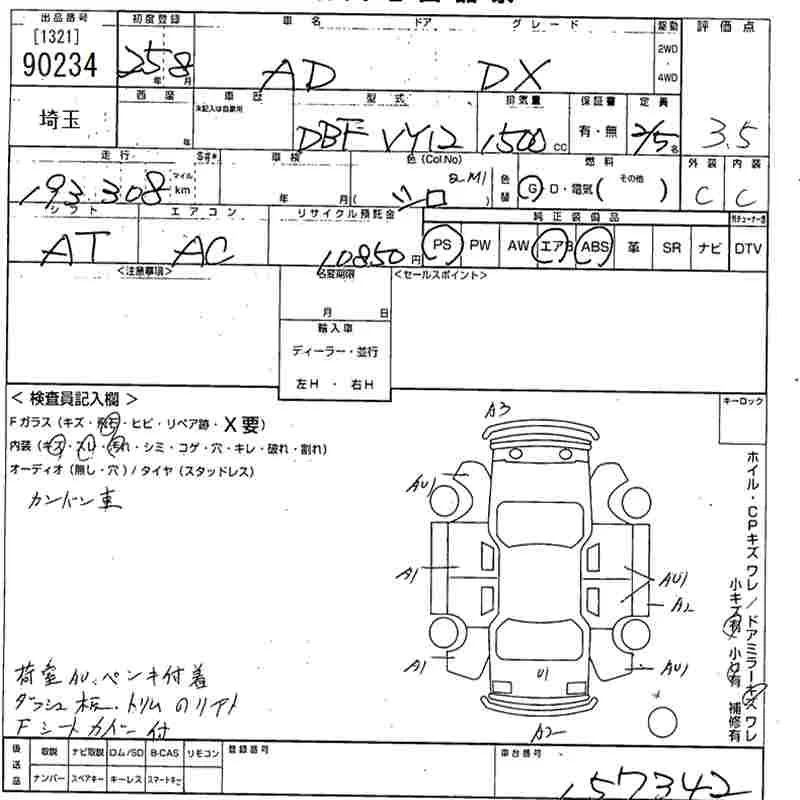 出品番号 初度登録 車名 ドア グレード 駆動 評価点
[1321]
90234
258
年 月
AD DX
2WD
・
4WD
3.5
埼玉
西暦 車歴 型式 排気量 保証書 定員
未記入は自家用
年
DBF VY12 1500 cc 有・無 2/5 名
走行 車検 色(Col.No) 色替 燃料 外装 内装
193,308 マイル km
年 月
シロ
G・D・電気( その他 )
C C
シフト エアコン リサイクル預託金 純正装備品
AT AC 10850 円
PS PW AW エアB ABS 革 SR ナビ DTV
<注意事項> 名変期限 <セールスポイント>
月 日
輸入車
ディーラー・並行
左H ・ 右H
キーロック
<検査員記入欄>
Fガラス(キズ・飛石・ヒビ・リペア跡・X要)
内装(キズ・スレ・汚れ・シミ・コゲ・穴・キレ・破れ・割れ)
オーディオ(無し・穴)/タイヤ(スタッドレス)
A3
AU1
A1 AU1
A2
A1 U1 AU1
A2
ホイル・CPキズワレ/ドアミラーキズワレ
小キズ有 小凹有 補修有
荷室AU、ペンキ付着
ダッシュ板、トリムのリアト
Fシートカバー付
後送品 取説 ナビ取説 ロム/SD B-CAS リモコン 登録番号 車台番号
ナンバー スペアキー キーレス スマートキー
157342